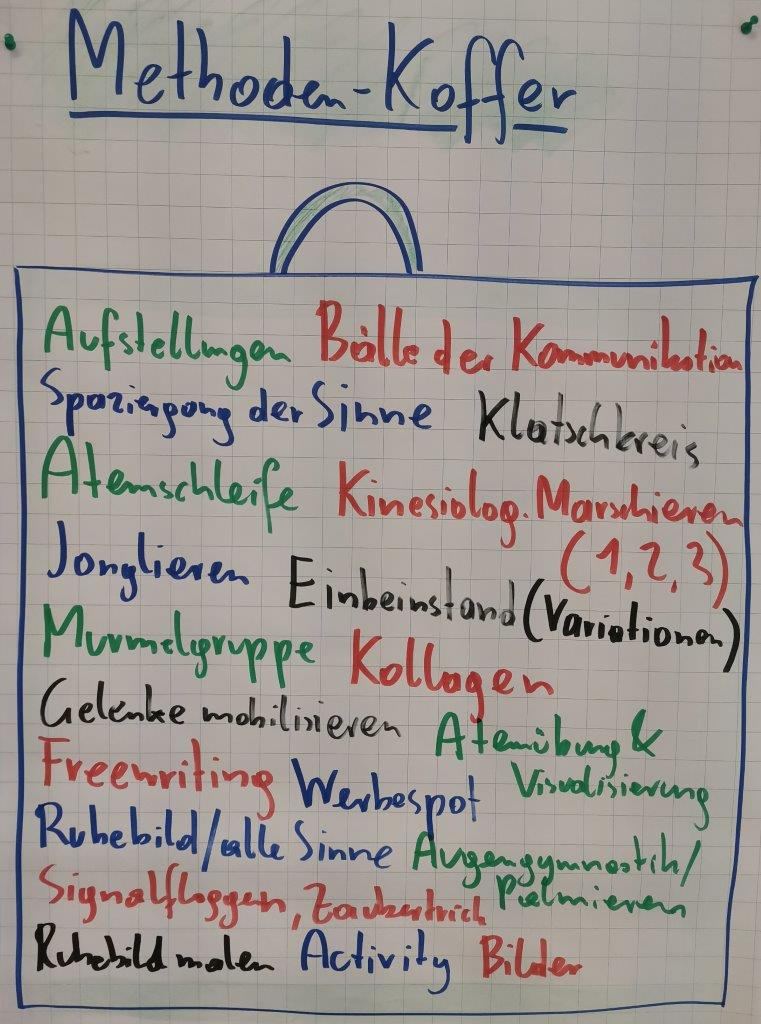 Methoden-Koffer
Aufstellungen Bälle der Kommunikation
Spaziergang der Sinne Klatschkreis
Atemschleife Kinesiolog. Marschieren
(1, 2, 3)
Jonglieren Einbeinstand (Variationen)
Murmelgruppe Kollagen
Gelenke mobilisieren Atemübung &
Visualisierung
Freewriting Werbespot
Ruhebild/alle Sinne Augengymnastik/
Palmieren
Signalflaggen, Zaubertrick
Ruhebild malen Activity Bilder